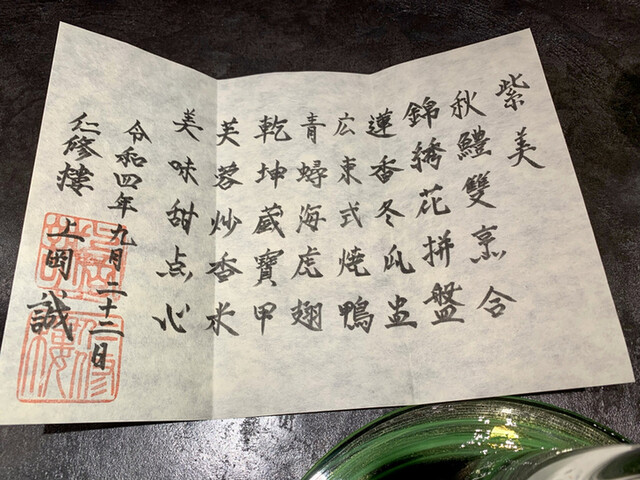 紫美
秋鱧雙烹合
錦綉花拼盤
蓮香冬瓜盅
広東式燒鴨
青蟳海虎翅
乾坤蔵寶甲
芙蓉炒香米
美味甜点心
令和四年九月二十二日
仁修樓 上岡誠